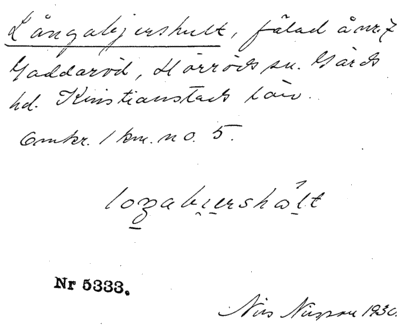 Långabjershult, fälad å nr 7
Gaddaröd, Hörröds sn. Gärds
hd. Kristianstads län.
Omkr. 1 km. n o. 5.
Nr 5333.
Nils Nilsson 1930.